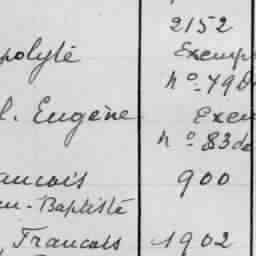 2152
polyte Exemp
nº 798
l. Eugène Exem
nº 83 de
ancois 900
an-Baptiste
, Francois 1902